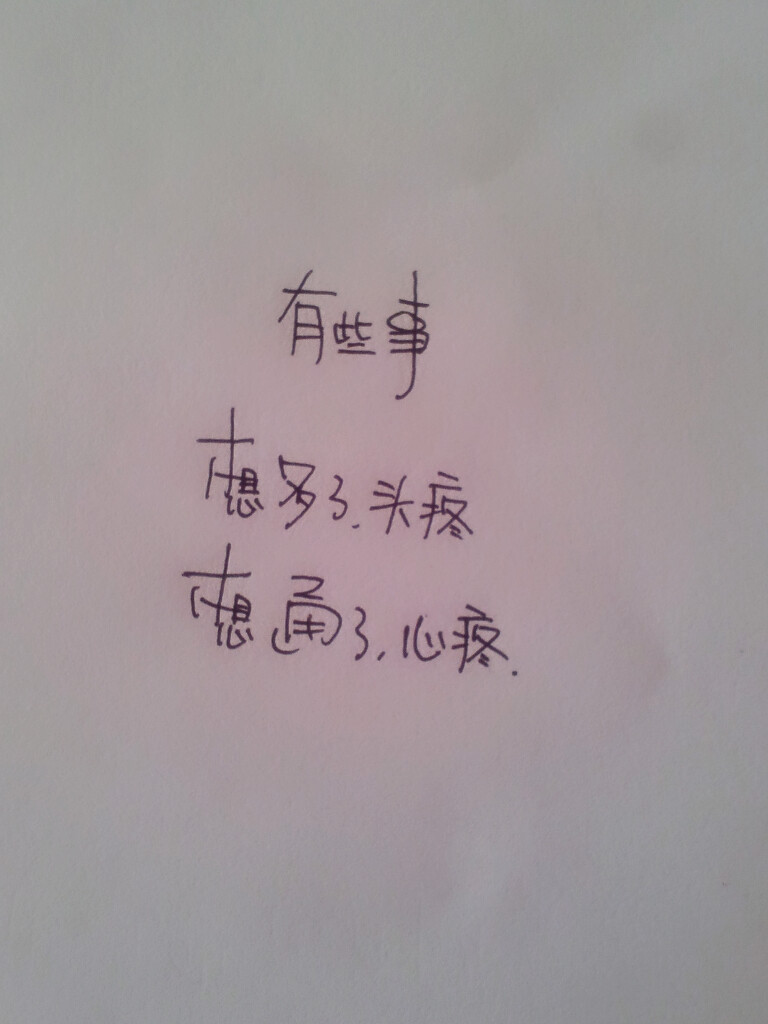 有些事
想多了.头疼
想通了,心疼.